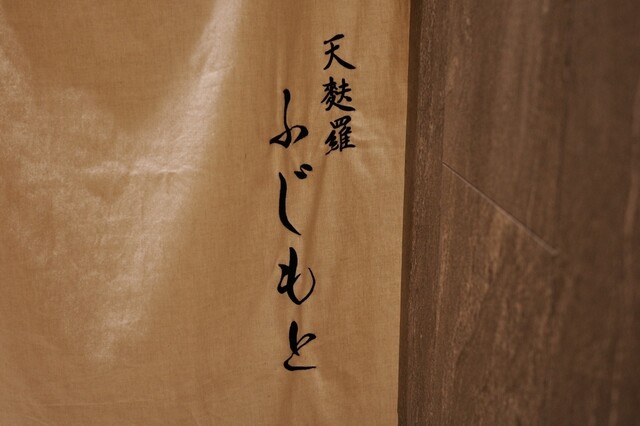 天麩羅
ふじもと